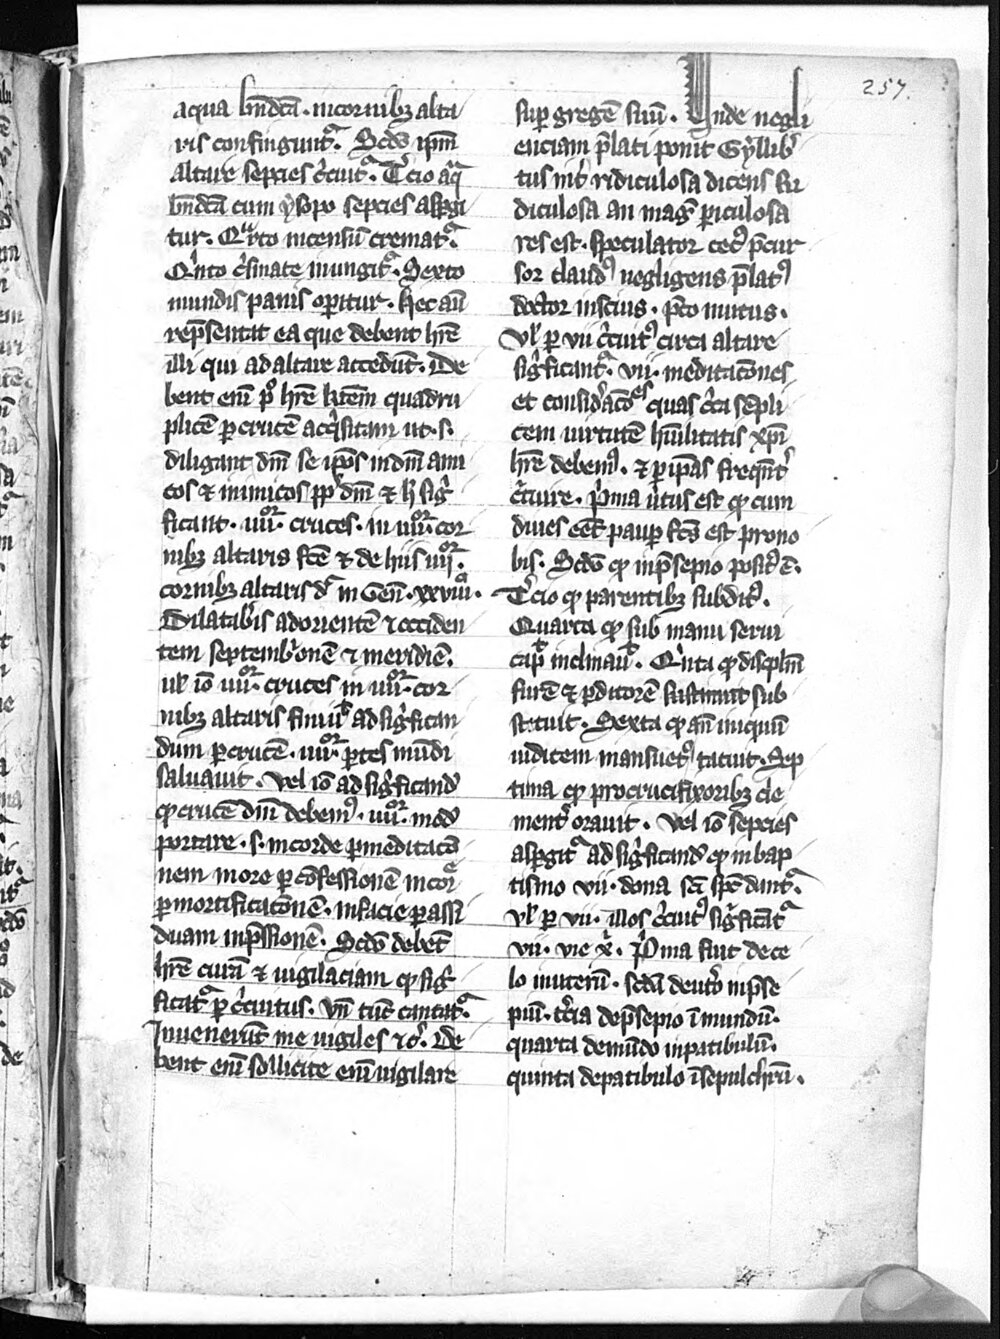 257.
aqua bn̄dcā · incornibꝫ alta
ris confinguntᷣ. Scdō ip̄m
Altare sepcies c̄cuitᷣ. Tᷣcio aq̄
bn̄dcā cum ẏsopo sepcies aspgi
tur. Qᷓrto incensū crematᷣ.
Qͥnto cͥsmate inungitᷣ. Sexto
mundis panis opitur. hec aū
rep̄sentat ea que debent hr̄e
illi qui ad altare accedūt. De
bent em̄ pͦ hr̄e kr̄tem quadru
plicē ꝑ crucē acqͥsitam ut .s.
diligant dm̄ se ip̄os indm̄ ami
cos ⁊ inimicos ꝓp̄ dm̄ ⁊ h̄ sigͥ
ficant · iiiiᵒʳ. cruces · in iiiiᵒʳ cor
nibꝫ altaris fc̄e ⁊ de hiis iiijᵒʳ.
cornibꝫ altaris dᷣ in Gen̄ · xxviiiᵃ.
Dilatabͥis ad orientē ⁊ occiden
tem septembͥonē ⁊ meridiē.
ul̄ iō iiiiᵒʳ. cruces in iiiiᵒʳ. cor
nibꝫ altaris fiunt ad sigͥfican
dum ꝑ crucē · iiiiᵒʳ ꝑtes mūdi
saluauit. Vel iō ad sigͥficandͫ
ꝙ crucē dm̄ debemꝰ · iiiiᵒʳ. modͦ
portare · s · incorde ꝑ meditacō
nem more ꝑ cōfessionē in corᷓ
ꝑ mortificacōnē · infacie ꝑ assi
duam inp̄ssionē. Scdō debēt
hr̄e curā ⁊ uigilaciam ꝙ sigͥ
ficatᷣ ꝑ cͥcuitus. Vn̄ tūc cantatᷣ.
Inuenerūt me uigiles ⁊cͥ. De
bent em̄ sollicite em̄ uigilare
suꝑ gregē suū. Vnde negli
enciam p̄lati ponit Gẏllibͥ
tus int̄ ridiculosa dicens Ri
diculosa an magͥ ꝑiculosa
res est · speculator cecꝰ p̄cur
sor claudꝰ negligens p̄latꝰ
doctor inscius · p̄co mutus.
Vl̄ ꝑ vii c̄cuitꝰ circa altare
sigͥficantᷣ. vii. meditacōnes
et considͥacōes quas cͥca septi
cem uirtutē hūilitatis xp̄i
hr̄e debemꝰ. ⁊ ꝑ ip̄as freqn̄tͥ
cͥcuire. pͥma uͥtus est ꝙ cum
diues eēt pauꝑ fc̄s est prono
bis. Scdō ꝙ inp̄sepio positꝰ ē.
Tᷣcio ꝙ parentibꝫ subditꝰ.
Quarta ꝙ sub manu serui
cap̄ inclinauͥ. Qͥnta ꝙ discplm̄
furē ⁊ ꝓditorē sustinuit sub
Sexta ꝙ an̄ iniquū
iudicem mansuetꝰ tacuit. Sep
tima ꝙ procrucifixoribꝫ cle
mentᷣ orauit. Vel iō sepcies
aspgitᷣ ad sigͥficandͫ ꝙ inbap
tismo vii. dona sc̄i sp̄c dantᷣ.
Vl̄ ꝑ vii. illos cͥcuitꝰ sigͥficātᷣ
vii. vie x̄. Pͥma fuit de ce
lo inuterū. scdā deutͦo inp̄se
piū. tᷣcia dep̄sepio ī mundū.
quarta demūdo inpatibulū.
quinta depatibulo īsepulchrū.